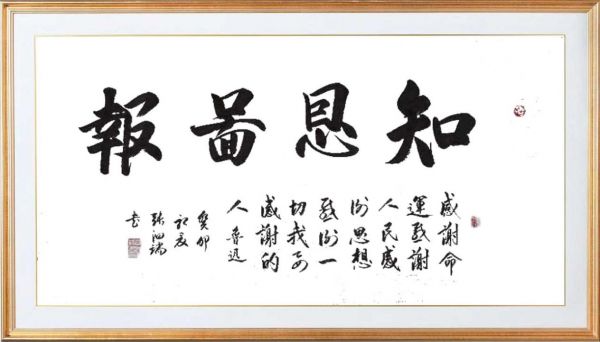 知恩啚報
感謝命
運感謝
人民感
謝思想
感謝一
切我要
感謝的
人 魯迅
癸卯
初夏
張
書